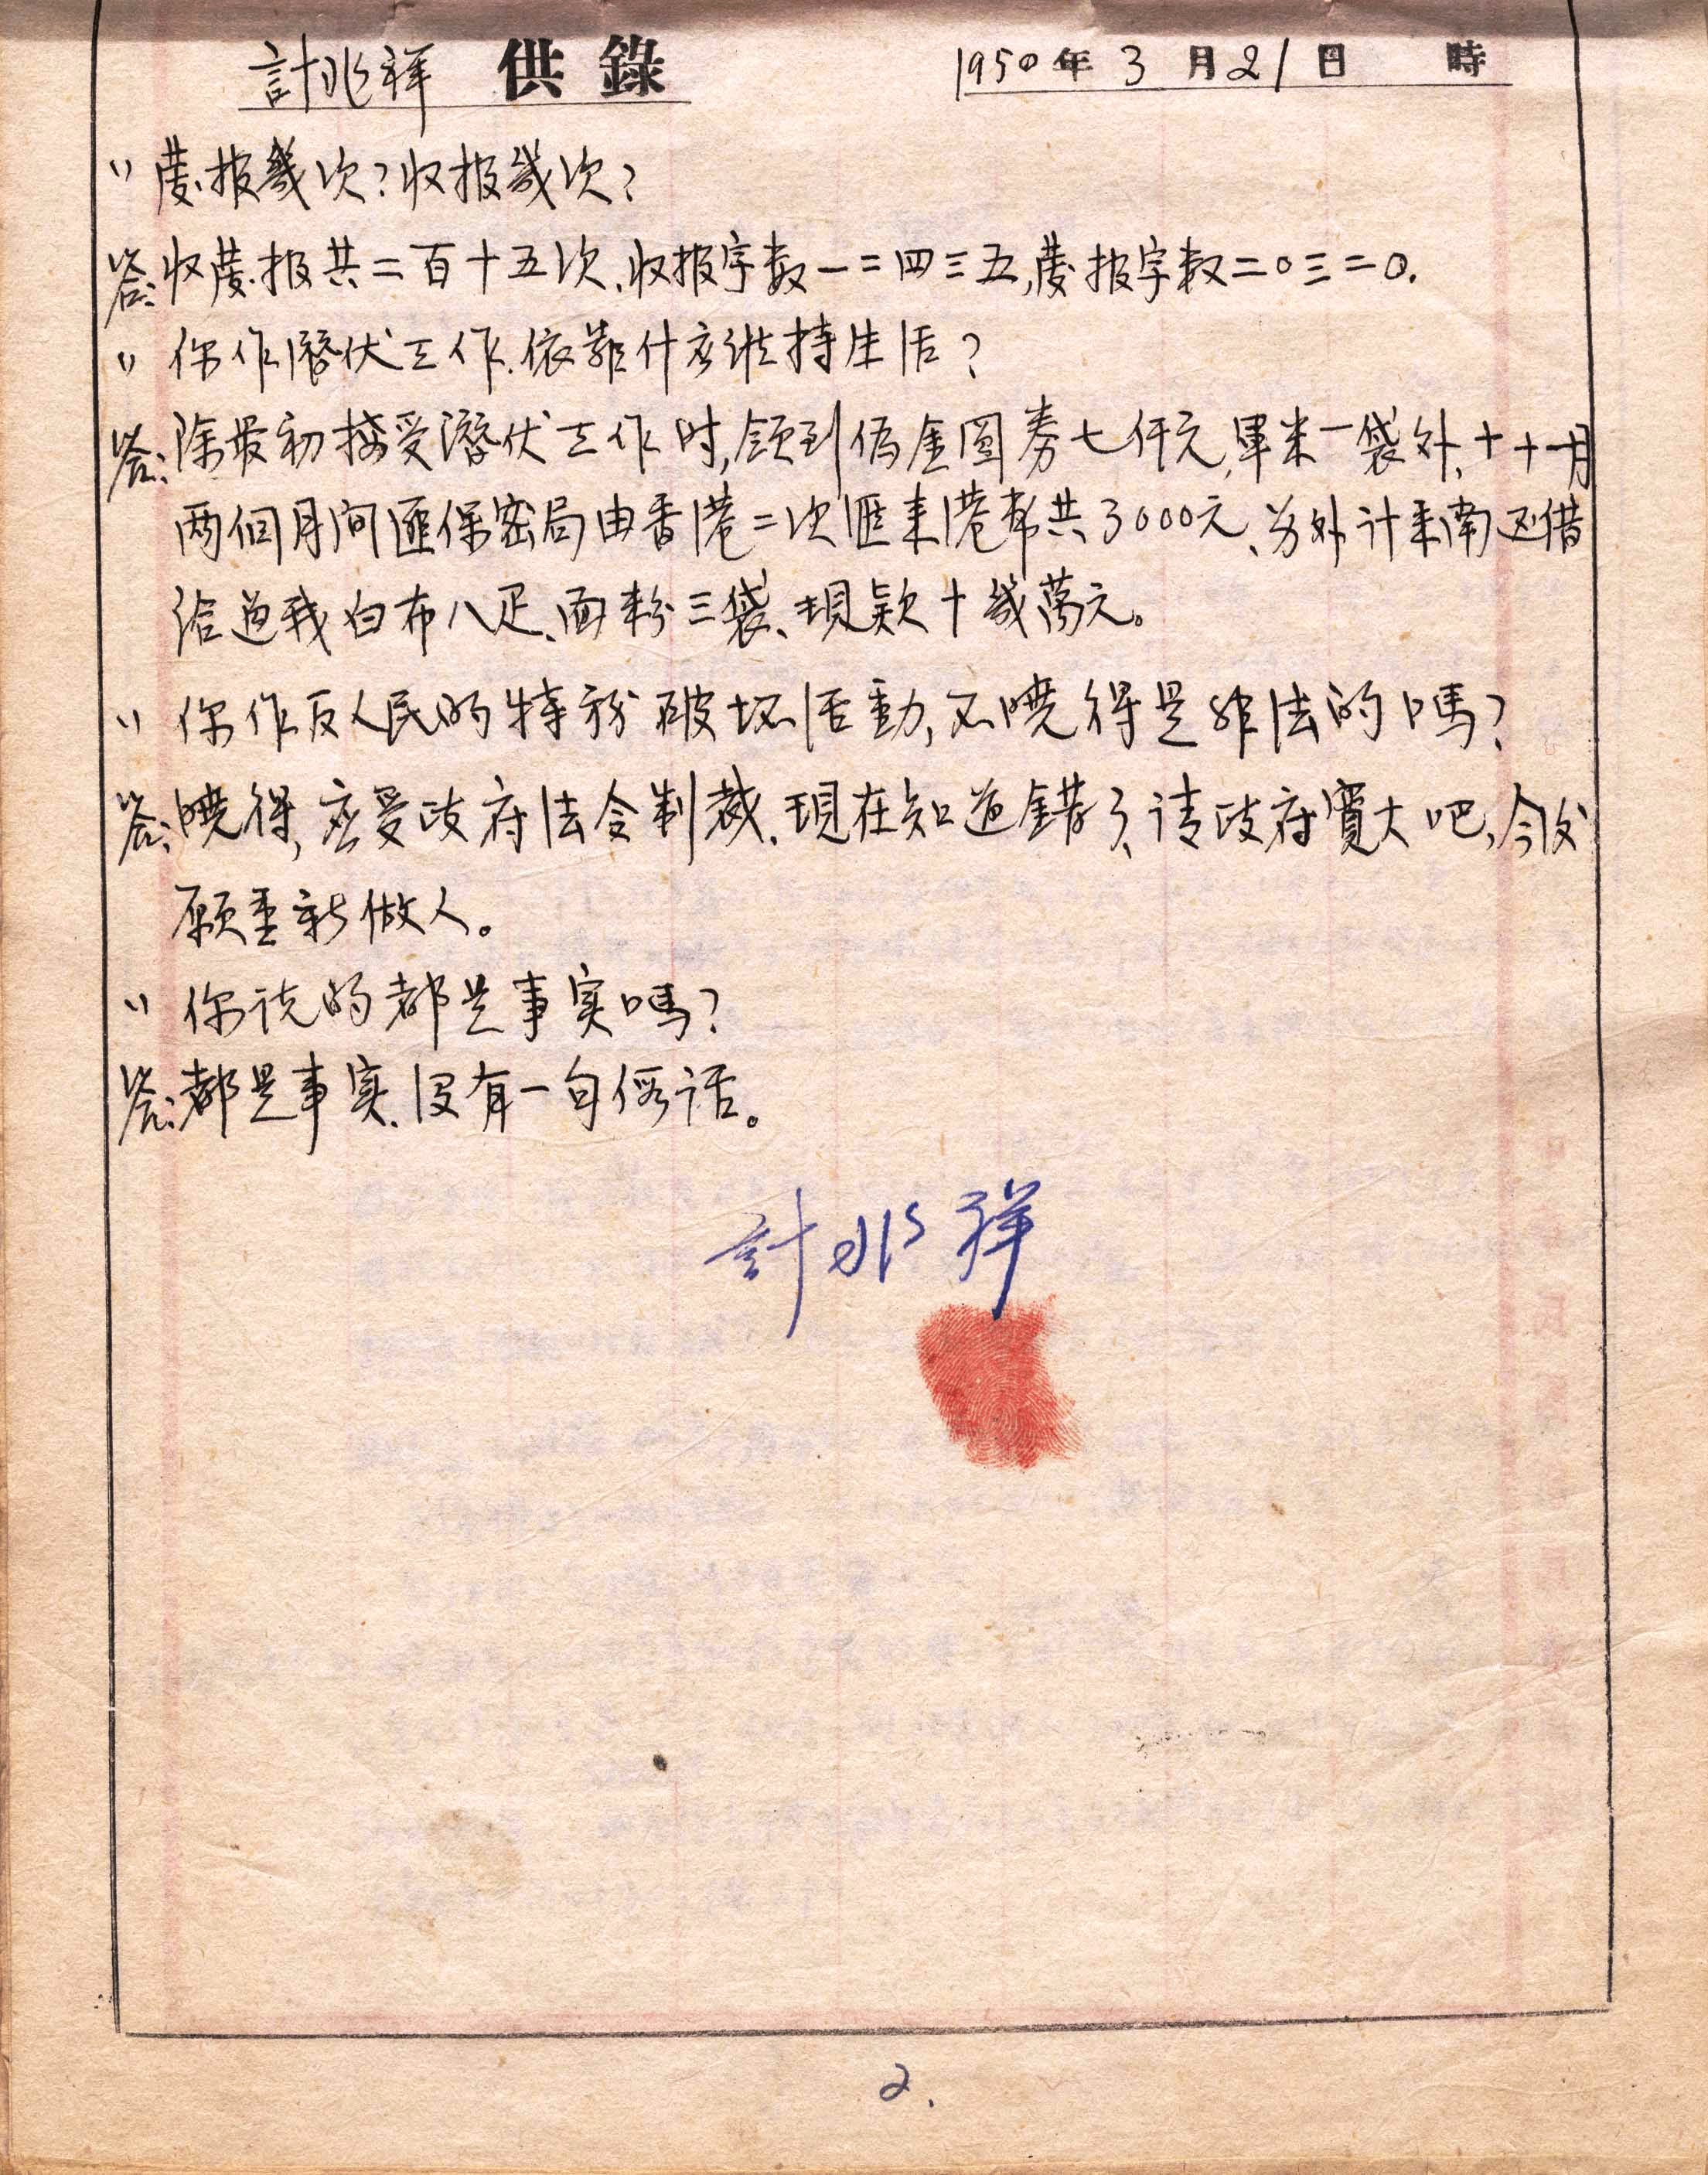 計兆祥 供錄 1950年3月21日 時
〃 發报幾次?收报幾次?
答:收發报共二百十五次、收报字数一二四三五,發报字数二〇三二〇.
〃 你作潛伏工作.依靠什么維持生活?
答:除最初接受潛伏工作时,領到伪金圆券七仟元,軍米一袋外、十十一月
两個月间匪保密局由香港二次匯来港幣共3000元、另外计采南还借
给过我白布八疋、面粉三袋、現款十幾萬元。
〃 你作反人民的特务破坏活動,不曉得是非法的嗎?
答:曉得,应受政府法令制裁.現在知道錯了、请政府寬大吧,今後
願重新做人。
〃 你说的都是事实嗎?
答:都是事实.没有一句假话。
計兆祥
2.